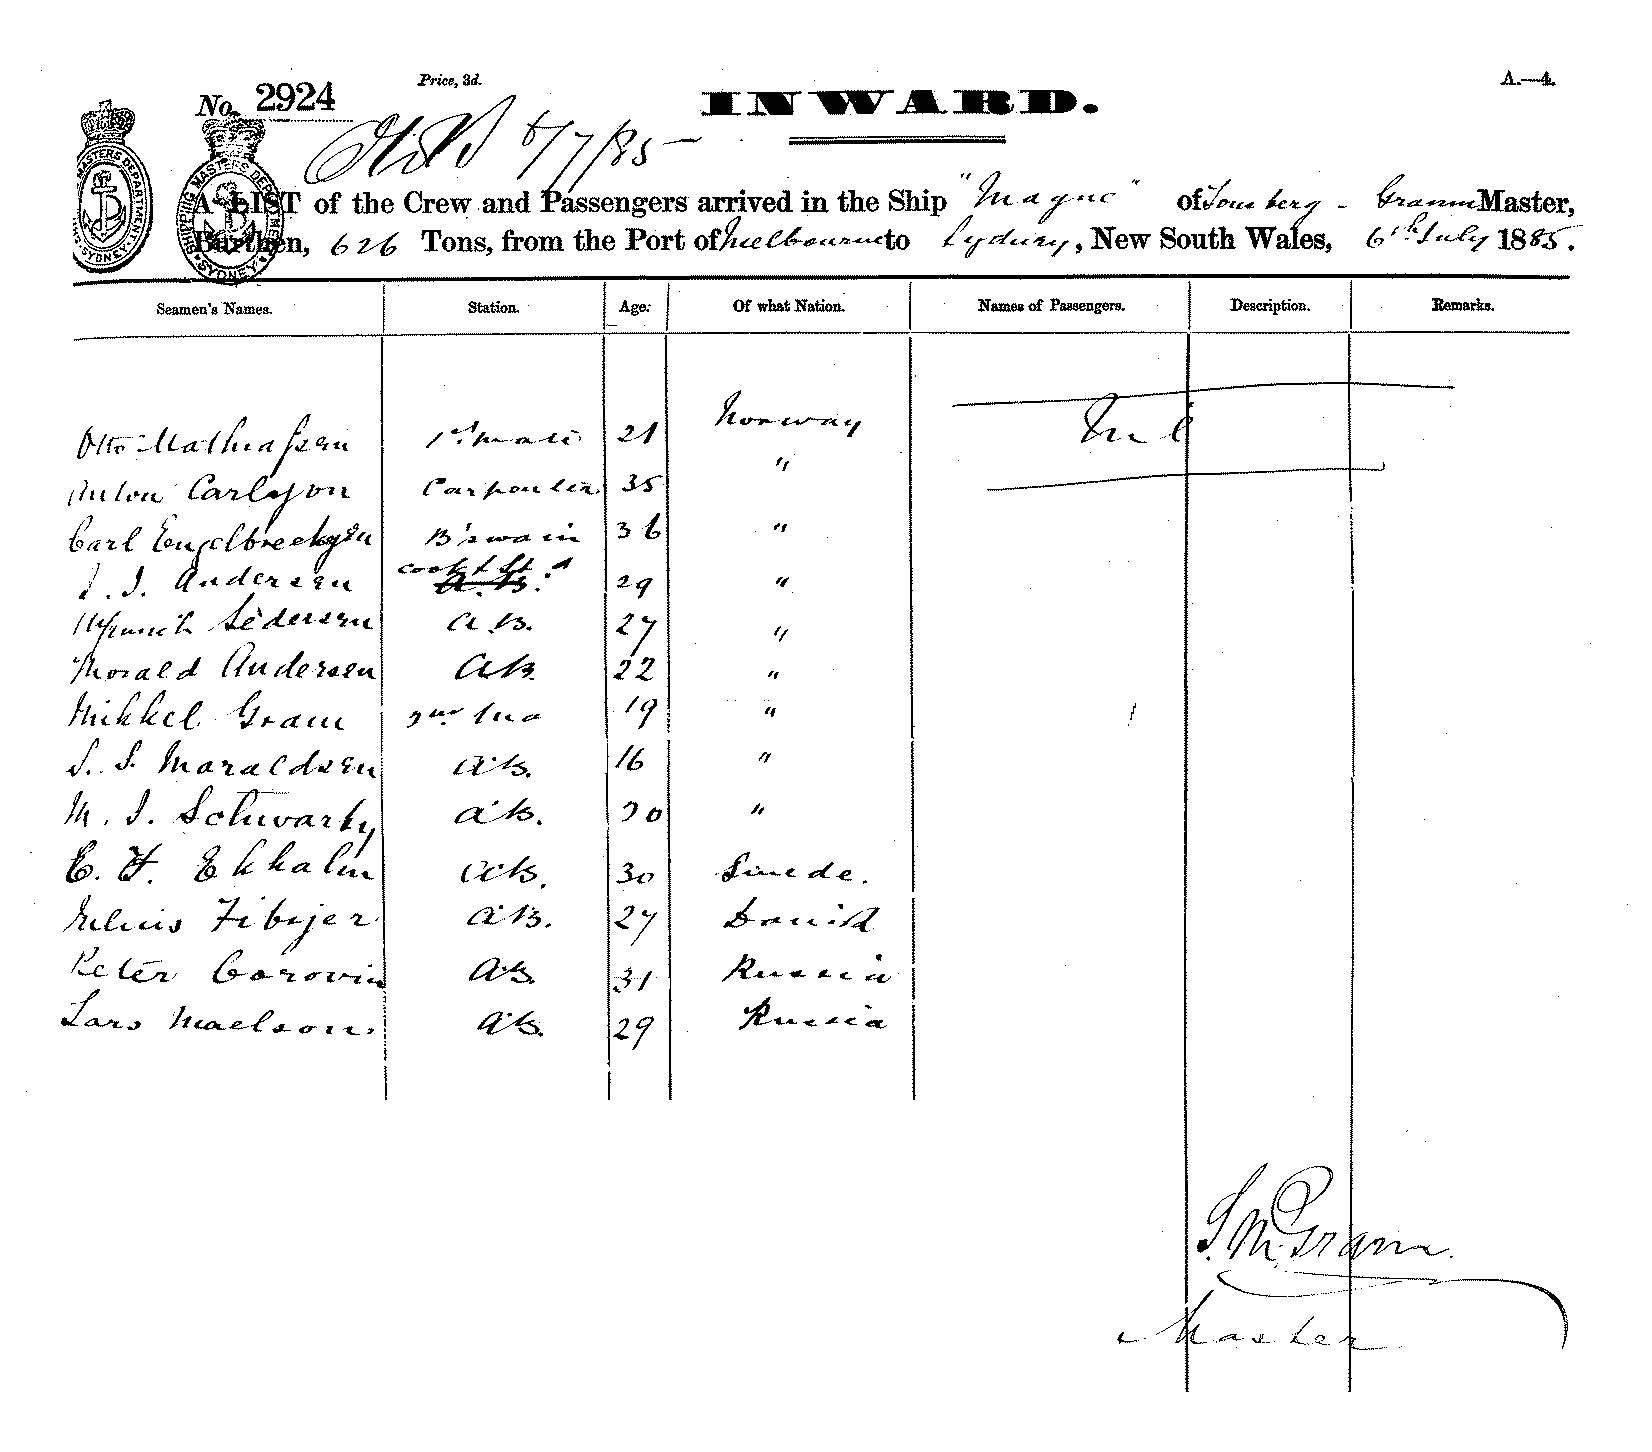 Price, 3d.
A.—4.
No. 2924
INWARD.
6/7/85
SHIPPING MASTERS DEPARTMENT SYDNEY
A LIST of the Crew and Passengers arrived in the Ship "Magne" of Tonsberg - Gramm Master,
Burthen, 626 Tons, from the Port of Melbourne to Sydney, New South Wales, 6th July 1885.
Seamen's Names. Station. Age. Of what Nation. Names of Passengers. Description. Remarks.
Otto Mathiassen 1st mate 21 Norway Nil
Anton Carlsson Carpenter 35 "
Carl Engelbreckssen B'swain 36 "
J. J. Andersen cook & St.d A.B. 29 "
Pedersen A.B. 27 "
Thorald Andersen AB. 22 "
Mikkel Gram 19 "
S. S. Maraldsen A.B. 16 "
M. J. Schwartz A.B. 20 "
E. F. Ekhalm AB. 30 Swede.
Julius Fibiger A.B. 27 Danish
Peter Corovin AB. 31 Russia
Lars Maelson. AB. 29 Russia
S. M. Gram.
Master